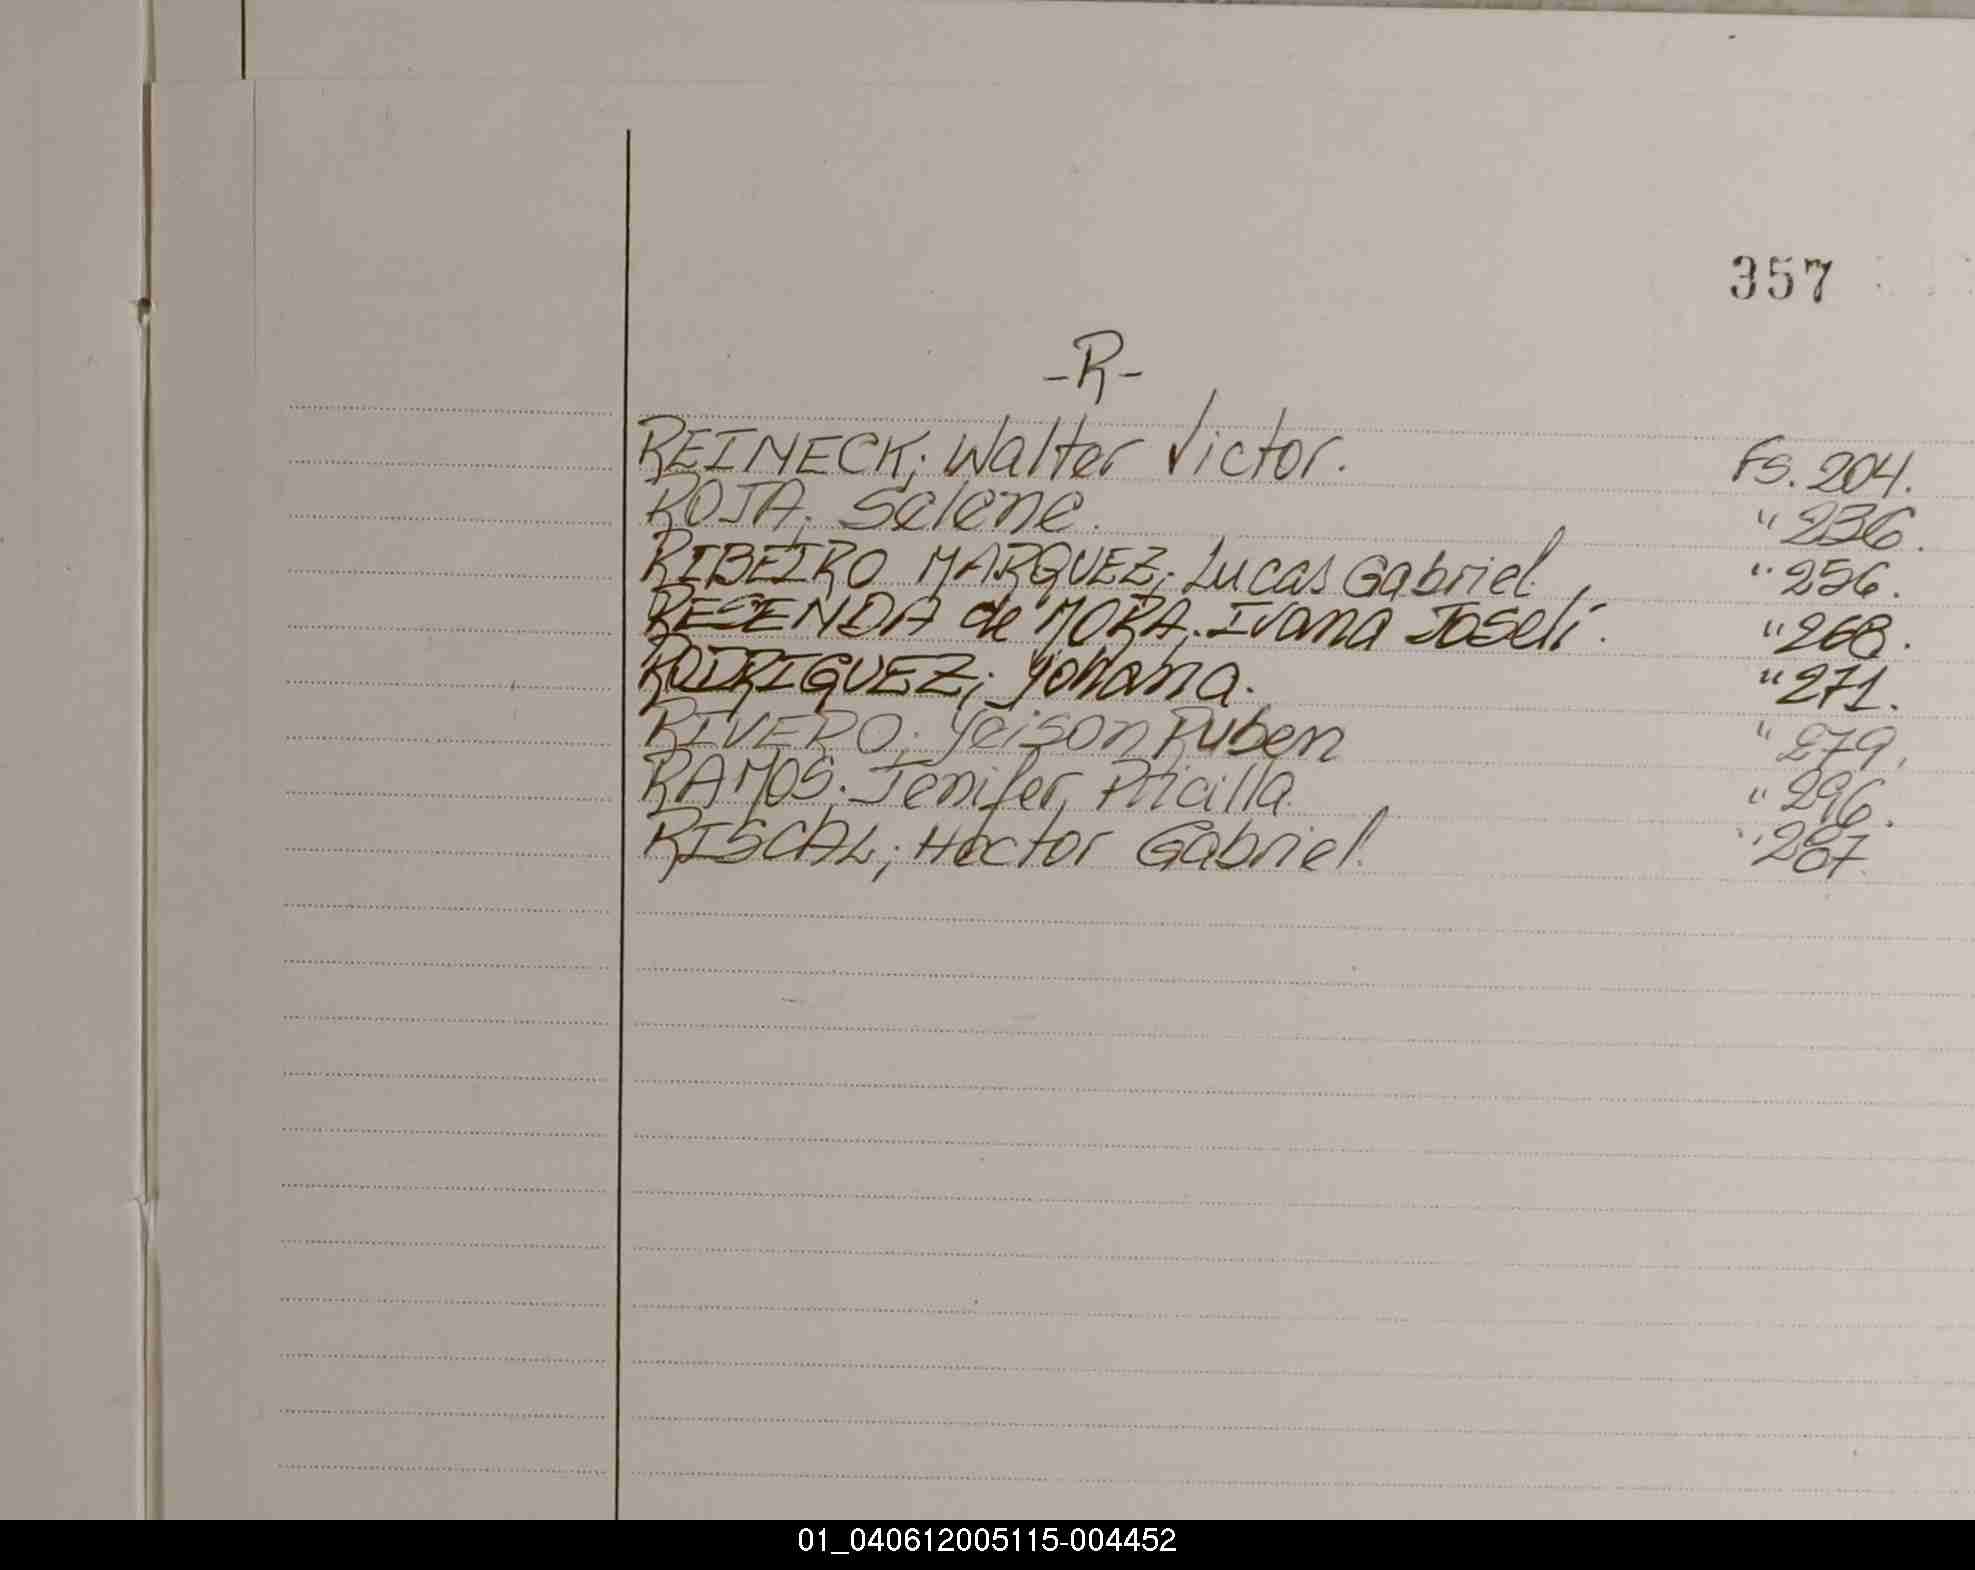 357
-R-
REINECK; Walter Victor. Fs. 204.
ROJA; Selene. " 236.
RIBEIRO MARQUEZ; Lucas Gabriel. " 256.
RESENDA de MORA. Ivana Joseli. " 268.
RODRIGUEZ; Yohana. " 271.
RIVERO; Yeison Ruben " 279.
RAMOS; Jenifer, " 296.
RISCAL; Hector Gabriel. " 287.
01_040612005115-004452